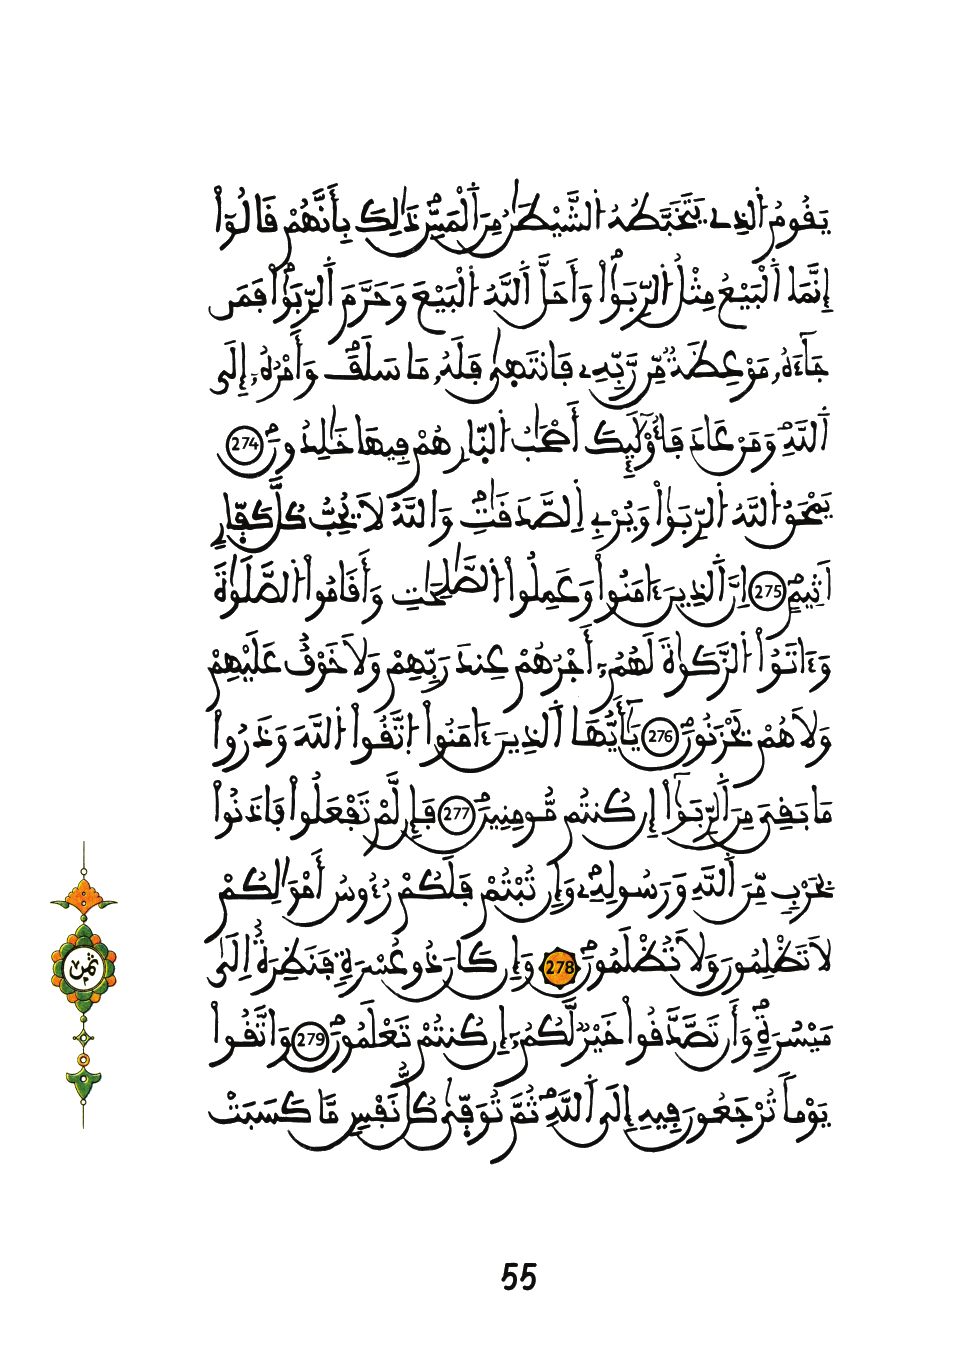 يَقُومُ اُ۬لذِے يَتَخَبَّطُهُ اُ۬لشَّيْطَٰنُ مِنَ اَ۬لْمَسِّۖ ذَٰلِكَ بِأَنَّهُمْ قَالُوٓاْ
إِنَّمَا اَ۬لْبَيْعُ مِثْلُ اُ۬لرِّبَوٰاْۖ وَأَحَلَّ اَ۬للَّهُ اُ۬لْبَيْعَ وَحَرَّمَ اَ۬لرِّبَوٰاْۖ فَمَن
جَآءَهُۥ مَوْعِظَةٌ مِّن رَّبِّهِۦ فَانتَهىٰ فَلَهُۥ مَا سَلَفَۖ وَأَمْرُهُۥٓ إِلَى
اَ۬للَّهِۖ وَمَنْ عَادَ فَأُوْلَٰٓئِكَ أَصْحَٰبُ اُ۬لنّ۪ارِ هُمْ فِيهَا خَٰلِدُونَۖ 274
يَمْحَقُ اُ۬للَّهُ اُ۬لرِّبَوٰاْ وَيُرْبِے اِ۬لصَّدَقَٰتِۖ وَاللَّهُ لَا يُحِبُّ كُلَّ كَفّ۪ارٍ
اَثِيمٍۖ 275 اِنَّ اَ۬لذِينَ ءَامَنُواْ وَعَمِلُواْ اُ۬لصَّٰلِحَٰتِ وَأَقَامُواْ اُ۬لصَّلَوٰةَ
وَءَاتَوُاْ اُ۬لزَّكَوٰةَ لَهُمُۥٓ أَجْرُهُمْ عِندَ رَبِّهِمْ وَلَا خَوْفٌ عَلَيْهِمْ
وَلَا هُمْ يَحْزَنُونَۖ 276 يَٰٓأَيُّهَا اَ۬لذِينَ ءَامَنُواْ اُ۪تَّقُواْ اُ۬للَّهَ وَذَرُواْ
مَا بَقِيَ مِنَ اَ۬لرِّبَوٰٓاْ إِن كُنتُم مُّومِنِينَۖ 277 فَإِن لَّمْ تَفْعَلُواْ فَاذَنُواْ
بِحَرْبٍ مِّنَ اَ۬للَّهِ وَرَسُولِهِۦۖ وَإِن تُبْتُمْ فَلَكُمْ رُءُوسُ أَمْوَٰلِكُمْ
لَا تَظْلِمُونَ وَلَا تُظْلَمُونَۖ 278 وَإِن كَانَ ذُو عُسْرَةٖ فَنَظِرَةٌ اِلَىٰ
مَيْسُرَةٖۖ وَأَن تَصَّدَّقُواْ خَيْرٌ لَّكُمُۥٓ إِن كُنتُمْ تَعْلَمُونَۖ 279 وَاتَّقُواْ
يَوْماٗ تُرْجَعُونَ فِيهِ إِلَى اَ۬للَّهِۖ ثُمَّ تُوَفّ۪ىٰ كُلُّ نَفْسٍ مَّا كَسَبَتْ
ثمن
55